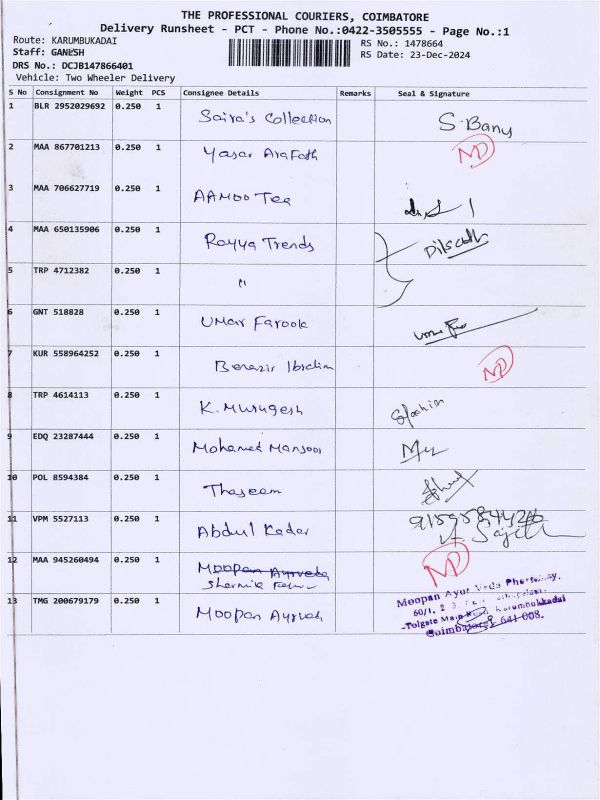 THE PROFESSIONAL COURIERS, COIMBATORE
Delivery Runsheet - PCT - Phone No.:0422-3505555 - Page No.:1
Route: KARUMBUKADAI
RS No.: 1478664
Staff: GANESH
RS Date: 23-Dec-2024
DRS No.: DCJB147866401
Vehicle: Two Wheeler Delivery
S No Consignment No Weight PCS Consignee Details Remarks Seal & Signature
1 BLR 2952029692 0.250 1 Saira's Collection S.Banu
2 MAA 867701213 0.250 1 Yasar Arafath ND
3 MAA 706627719 0.250 1 AAMOO Tea
4 MAA 650135906 0.250 1 Rayya Trends
5 TRP 4712382 0.250 1 "
6 GNT 518828 0.250 1 UMar Farook
7 KUR 558964252 0.250 1 Benazir Ibrahim ND
8 TRP 4614113 0.250 1 K. Murugesh
9 EDQ 23287444 0.250 1 Mohamed Mansoor
10 POL 8594384 0.250 1 Thaseem
11 VPM 5527113 0.250 1 Abdul Kadar
12 MAA 945260494 0.250 1 Moopan Ayurveda ND
Sharmila
13 TMG 200679179 0.250 1 Moopan
Moopan Ayur Veda Pharmacy.
60/1,
Tolgate Main Road, Karumbukkadai
Coimbatore - 641 008.